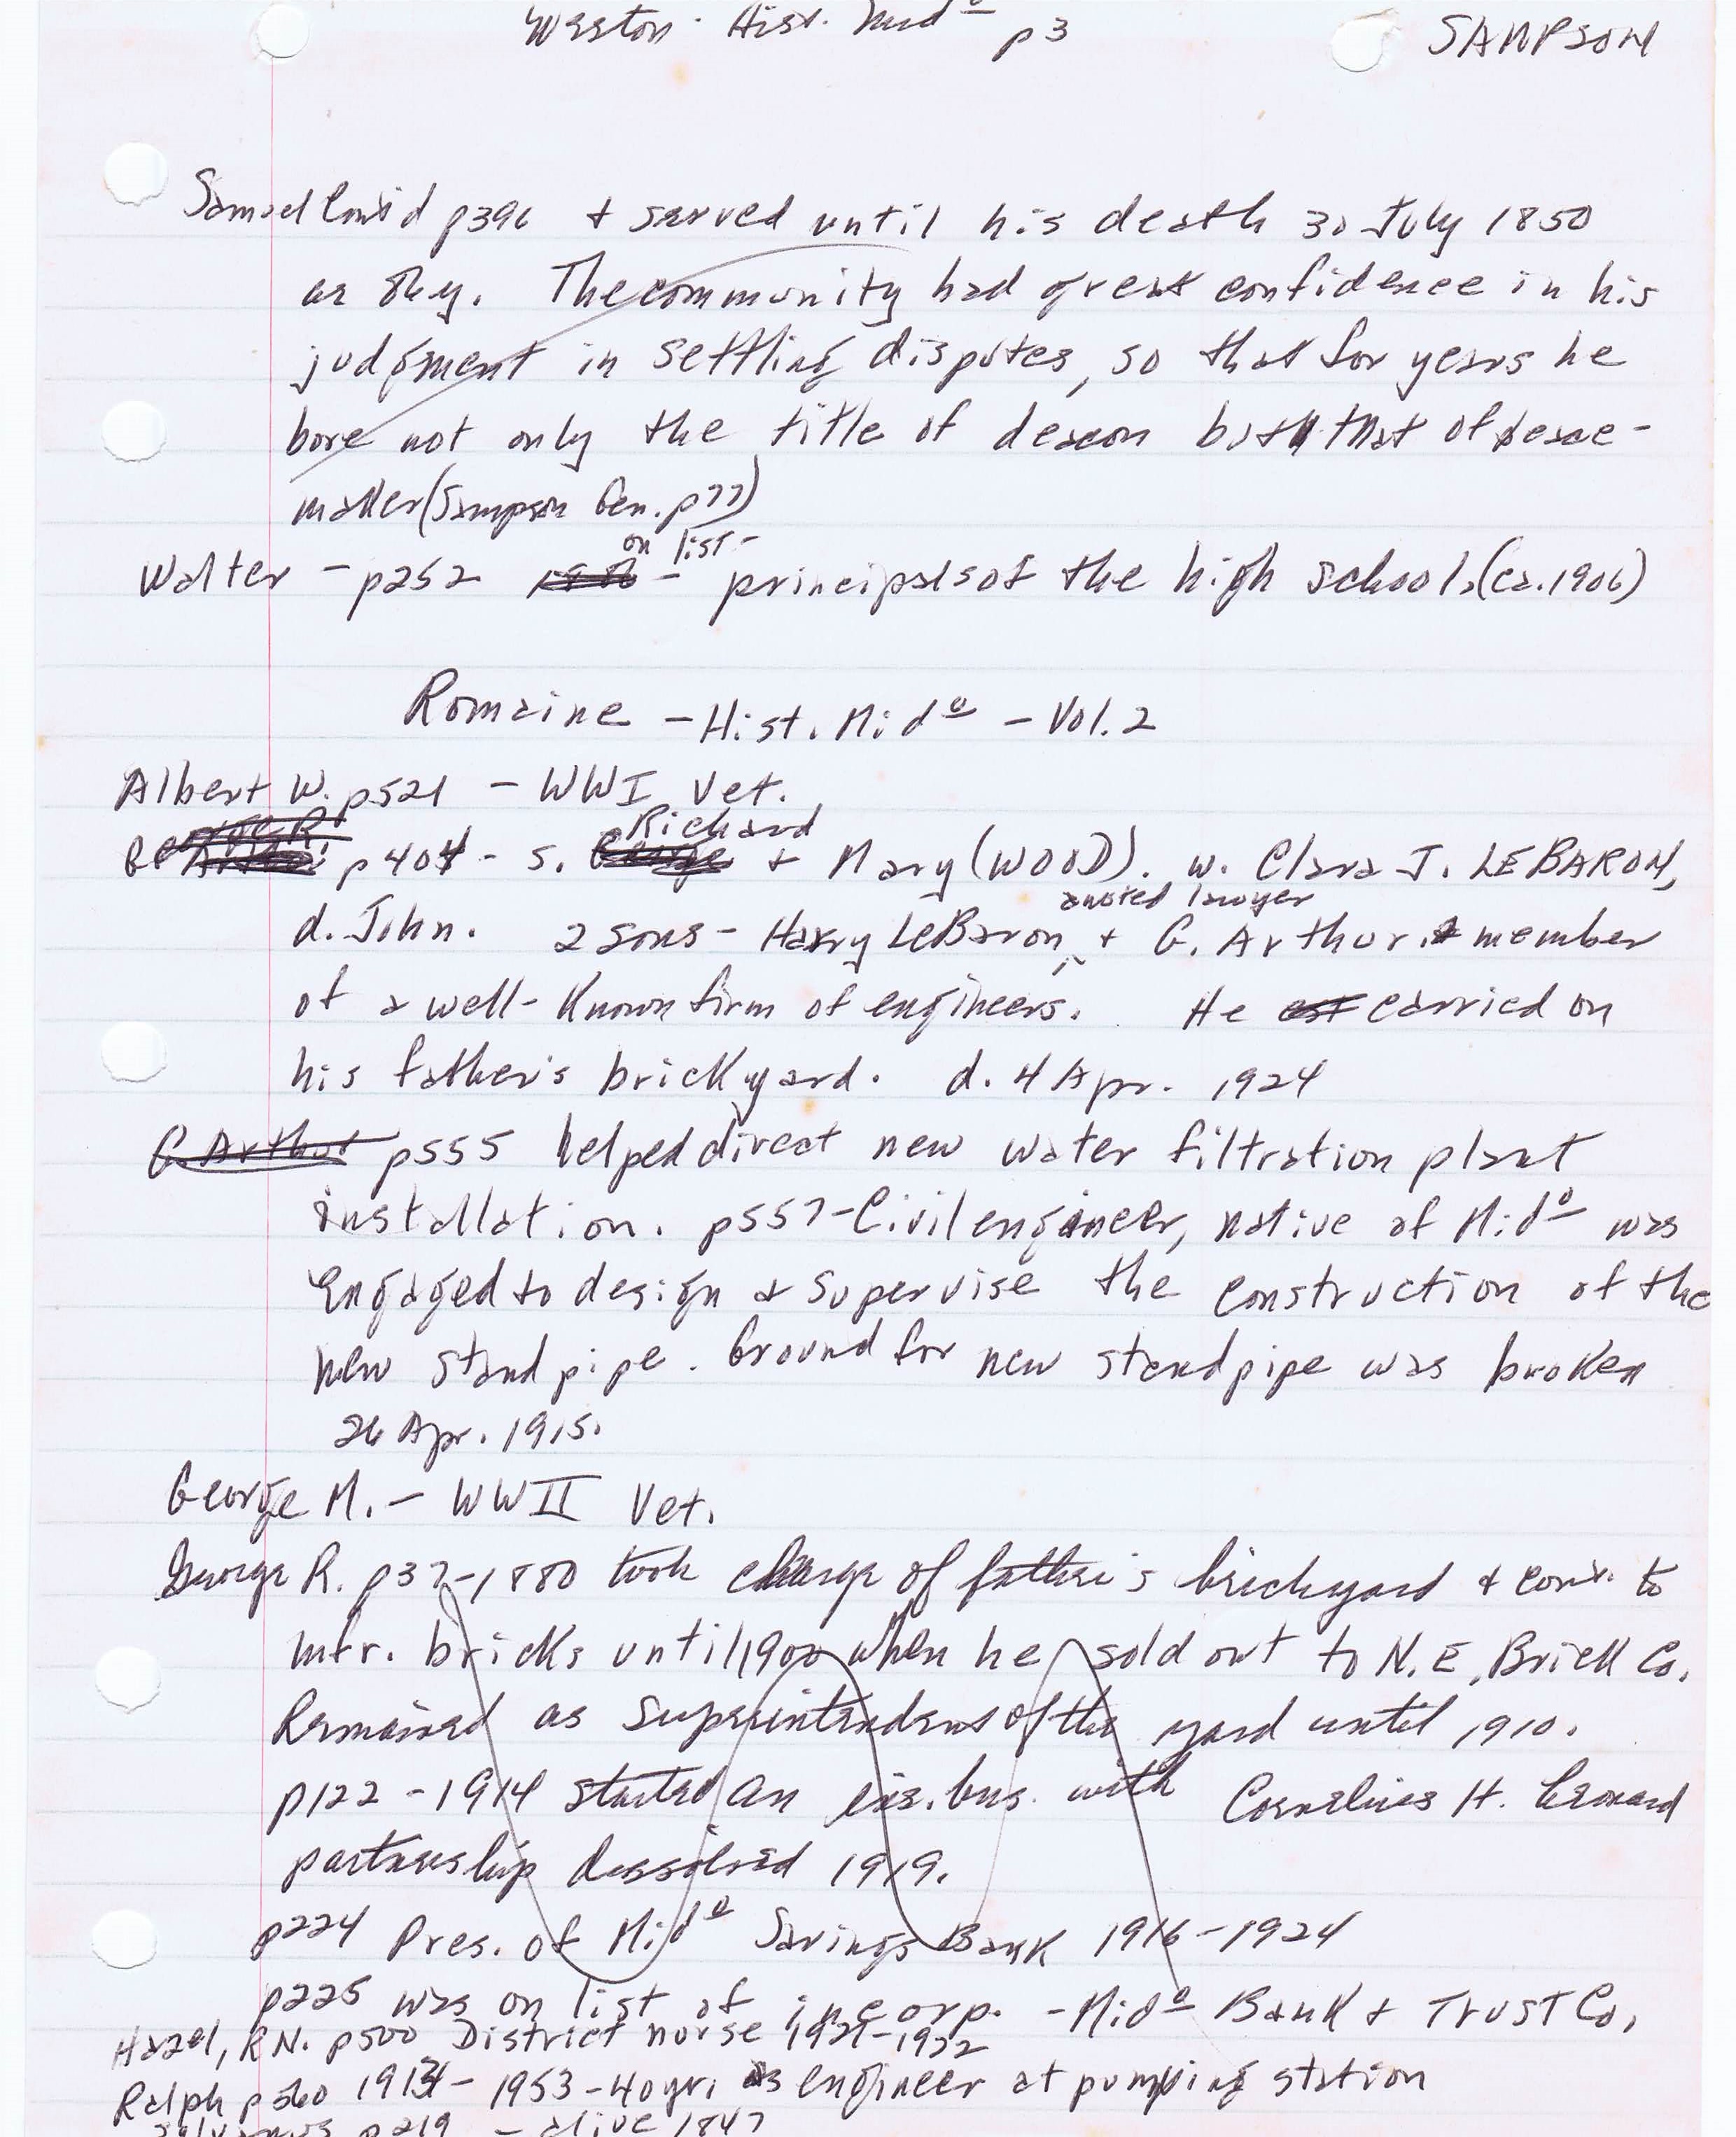 Weston - Hist. Midº p3
SAMPSON
Samuel Cont'd p396 + served until his death 30 July 1850
ae 87y. The community had great confidence in his
judgment in settling disputes, so that for years he
bore not only the title of deacon but that of peace-
maker (Sampson Gen. p77)
on list -
Walter - p252 - principals of the high school, (ca. 1906)
Romaine - Hist. Midº - Vol. 2
Albert W. p521 - WWI Vet.
Richard
p404 - s. George + Mary (WOOD). w. Clara J. LEBARON,
noted lawyer
d. John. 2 sons - Harry LeBaron, + G. Arthur. member
of a well-known firm of engineers. He carried on
his father's brickyard. d. 4 Apr. 1924
G. Arthur p555 helped direct new water filtration plant
installation. p557 - Civil engineer, native of Midº was
engaged to design & supervise the construction of the
new standpipe. Ground for new standpipe was broken
26 Apr. 1915.
George M. - WWII Vet.
George R. p37 - 1880 took charge of father's brickyard + cont. to
mfr. bricks until 1900 when he sold out to N.E. Brick Co.
Remained as superintendent of the yard until 1910.
p122 - 1914 started an ins. bus. with Cornelius H. Leonard
partnership dissolved 1919.
p224 Pres. of Midº Savings Bank 1916-1924
p225 was on list of incorp. - Midº Bank & Trust Co.
Hazel, RN. p500 District nurse 1921-1922
Ralph p560 1913 - 1953 - 40 yr. as engineer at pumping station
p219 - alive 1847